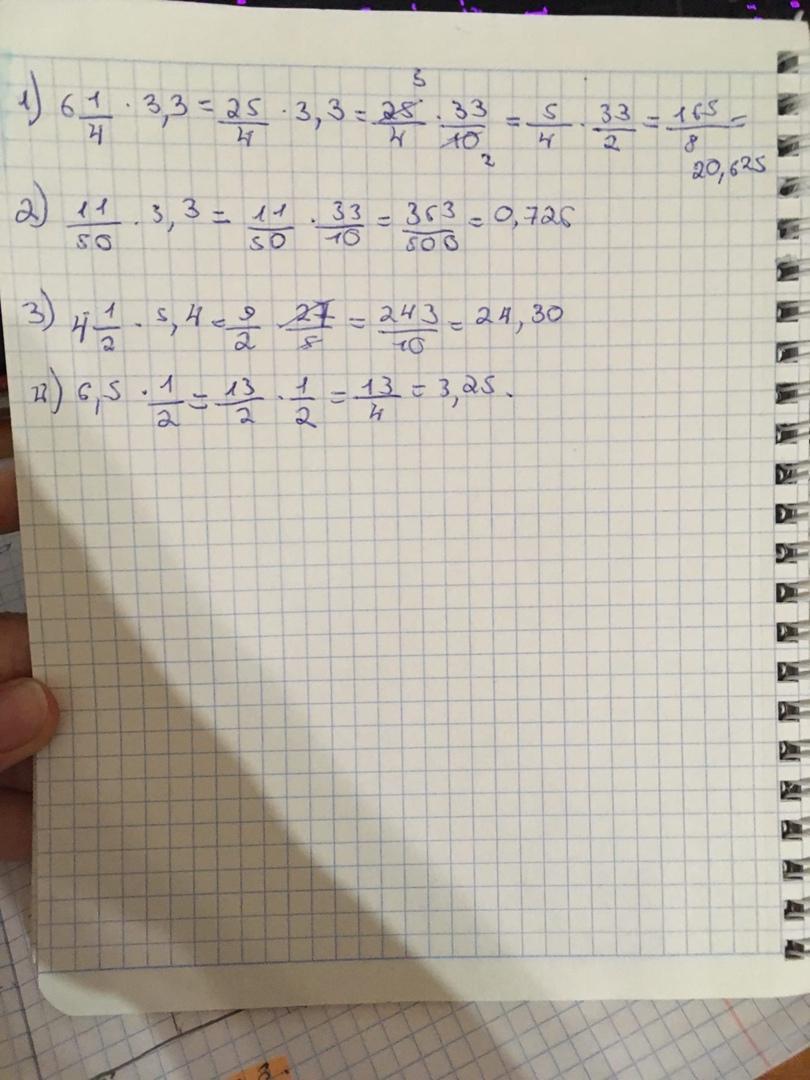 1) 6 1/4 · 3,3 = 25/4 · 3,3 = 25/4 · 33/10 = 5/4 · 33/2 = 165/8 =
5
2
20,625
2) 11/50 · 3,3 = 11/50 · 33/10 = 363/500 = 0,726
3) 4 1/2 · 5,4 = 9/2 · 27/5 = 243/10 = 24,30
4) 6,5 · 1/2 = 13/2 · 1/2 = 13/4 = 3,25.
3.